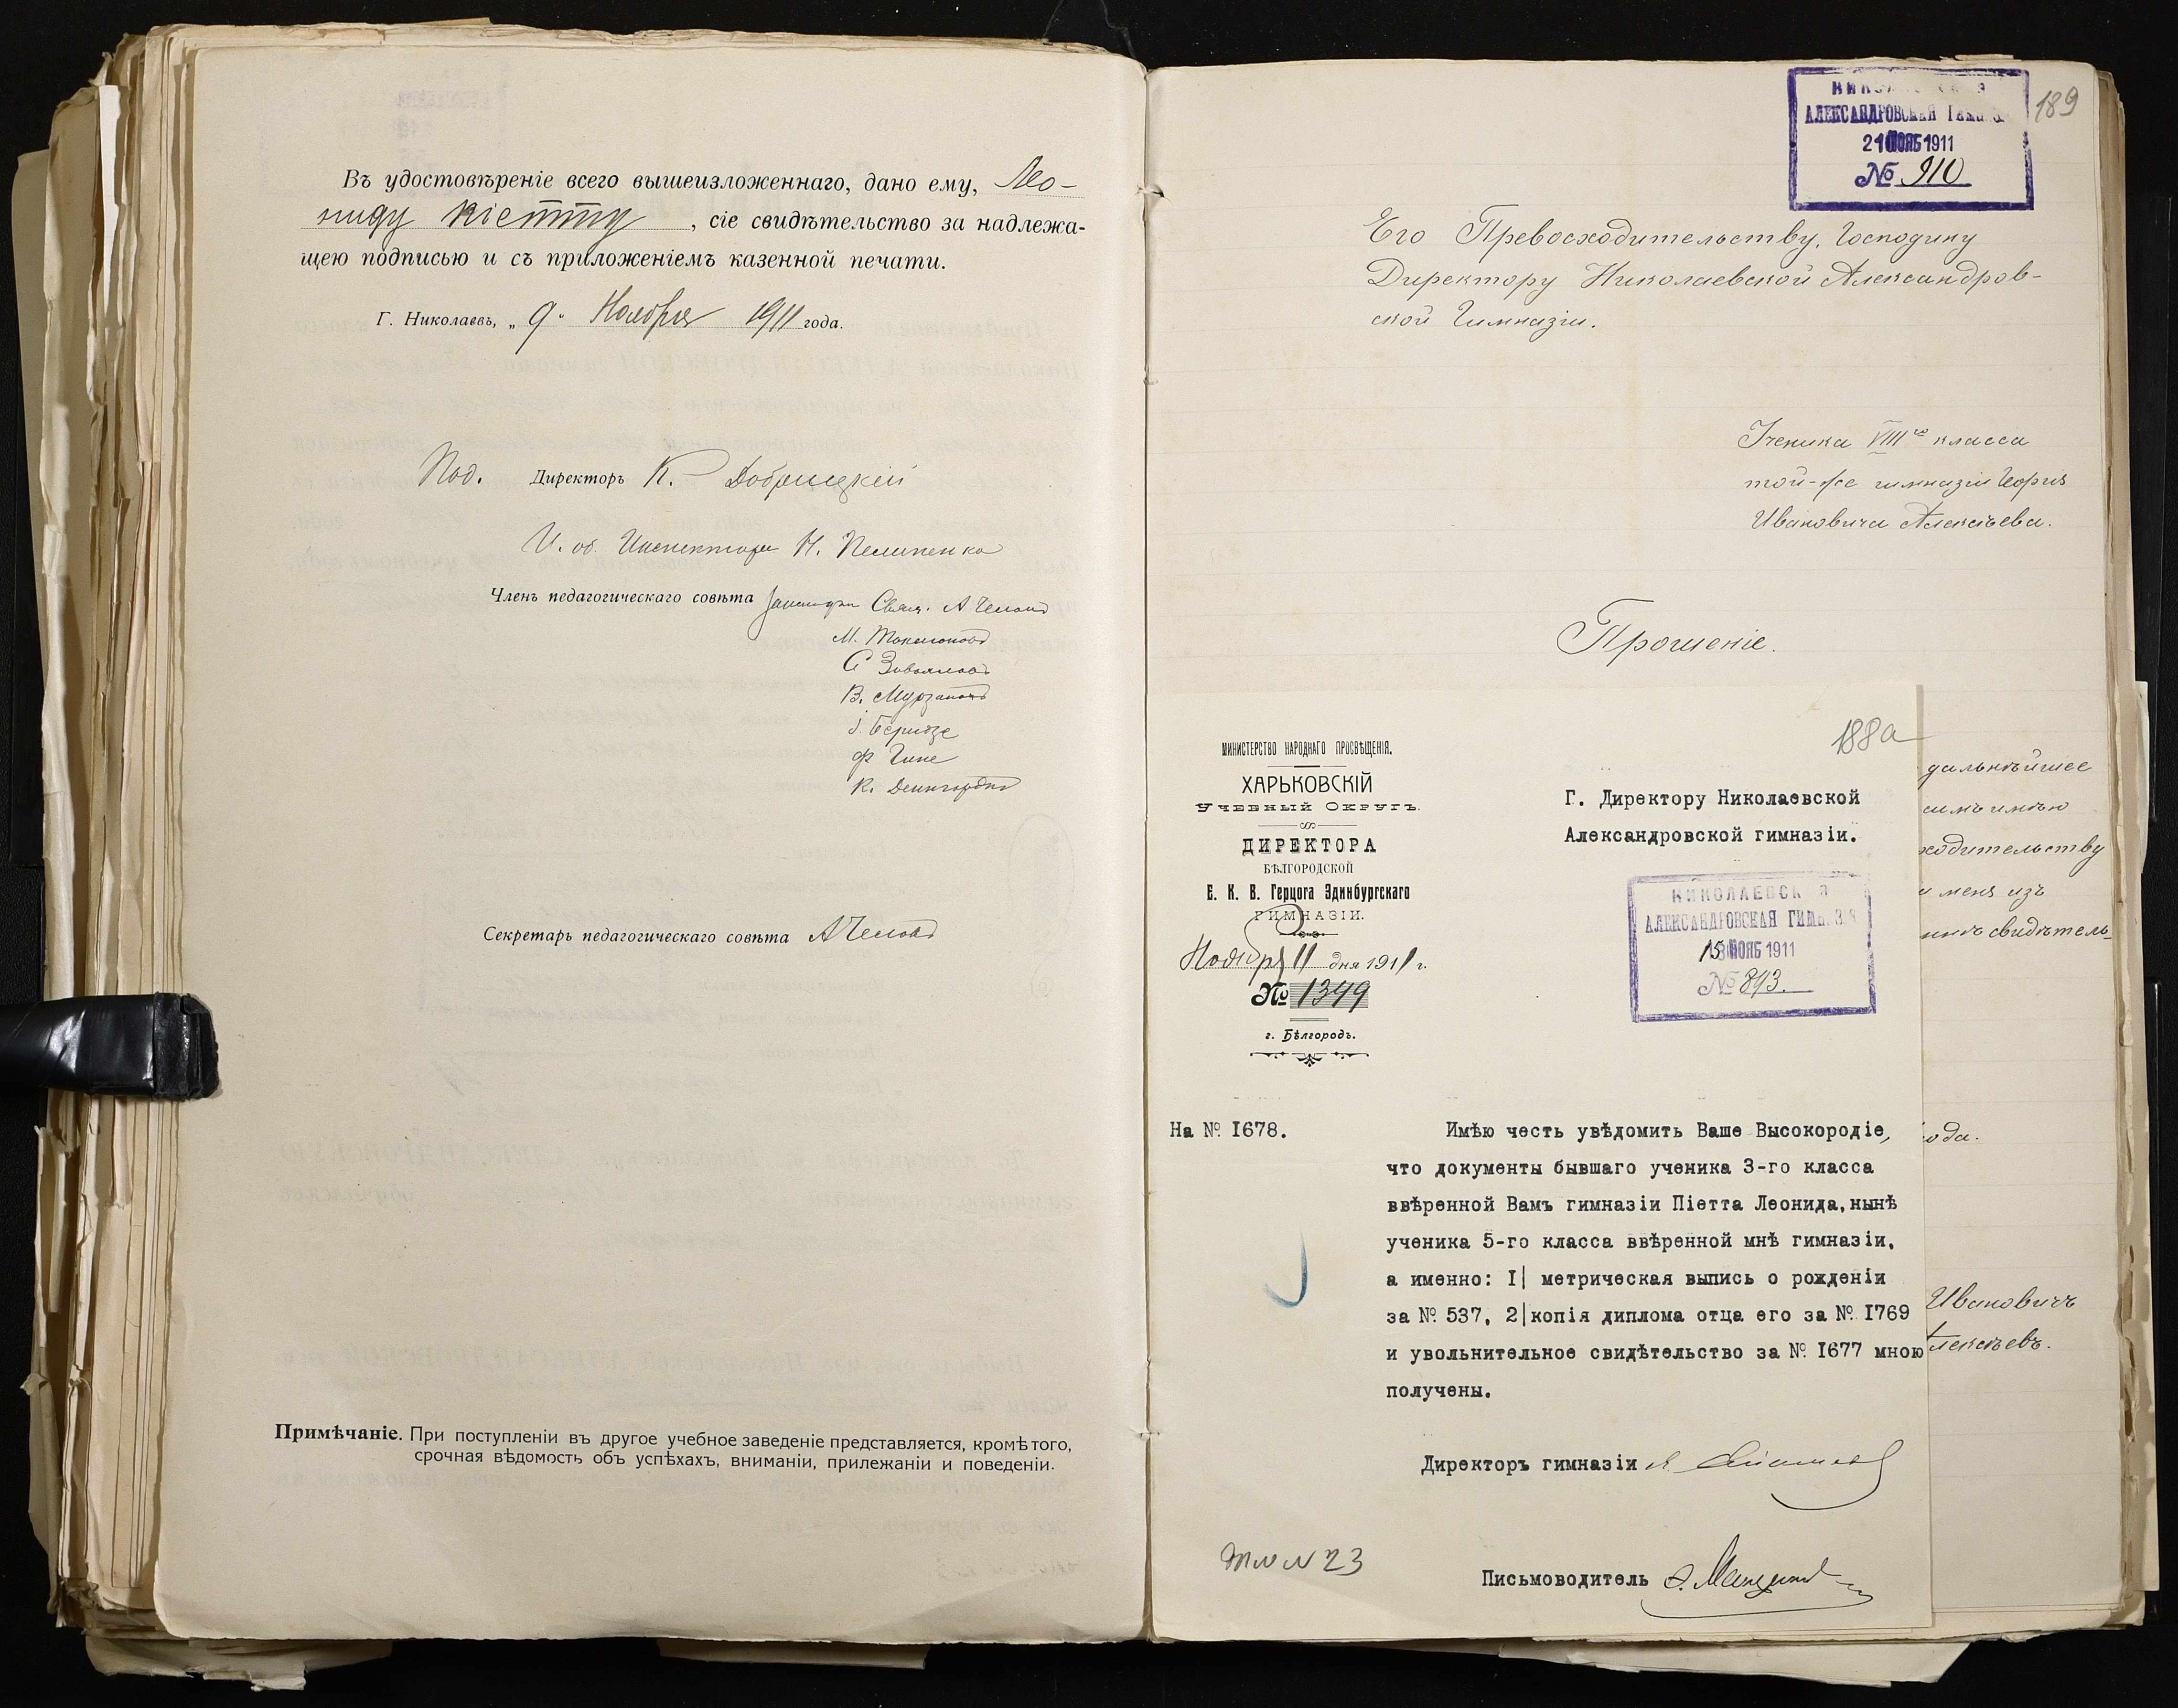 Въ удостовѣреніе всего вышеизложеннаго, дано ему, Лео-
ниду Піетту, сіе свидѣтельство за надлежа-
щею подписью и съ приложеніемъ казенной печати.
Г. Николаевъ, „9“ Ноября 1911 года.
Под. Директоръ К. Добрицкій
И. об. Инспектора Н. Пелипенко
Членъ педагогическаго совѣта Свящ. А Чехов
С Завьялов
Ф Гине
Секретарь педагогическаго совѣта А Чехов
Примѣчаніе. При поступленіи въ другое учебное заведеніе представляется, кромѣ того,
срочная вѣдомость объ успѣхахъ, вниманіи, прилежаніи и поведеніи.
АЛЕКСАНДРОВСКАЯ
21 НОЯБ 1911
№ 910
189
Его Превосходительству, Господину
Директору Николаевской Александров-
ской Гимназіи.
Ученика VIIIго класса
той-же гимназіи Георгія
Ивановича Алексѣева.
Прошеніе.
дальнѣйшее
симъ имѣю
ходительству
меня изъ
свидѣтель-
ода.
Ивановичъ
лексѣевъ.
188а
МИНИСТЕРСТВО НАРОДНАГО ПРОСВѢЩЕНІЯ.
ХАРЬКОВСКІЙ
Учебный Округъ.
ДИРЕКТОРА
БѢЛГОРОДСКОЙ
Е. К. В. Герцога Эдинбургскаго
ГИМНАЗІИ.
Ноября 11 дня 1911 г.
№ 1349
г. Бѣлгородъ.
Г. Директору Николаевской
Александровской гимназіи.
НИКОЛАЕВСКАЯ
АЛЕКСАНДРОВСКАЯ ГИМНАЗІЯ
15 НОЯБ 1911
№ 893.
На № I678.
Имѣю честь увѣдомить Ваше Высокородіе,
что документы бывшаго ученика 3-го класса
ввѣренной Вамъ гимназіи Піетта Леонида, нынѣ
ученика 5-го класса ввѣренной мнѣ гимназіи,
а именно: I| метрическая выпись о рожденіи
за № 537, 2| копія диплома отца его за № I769
и увольнительное свидѣтельство за № I677 мною
получены.
Директоръ гимназіи
Письмоводитель
23